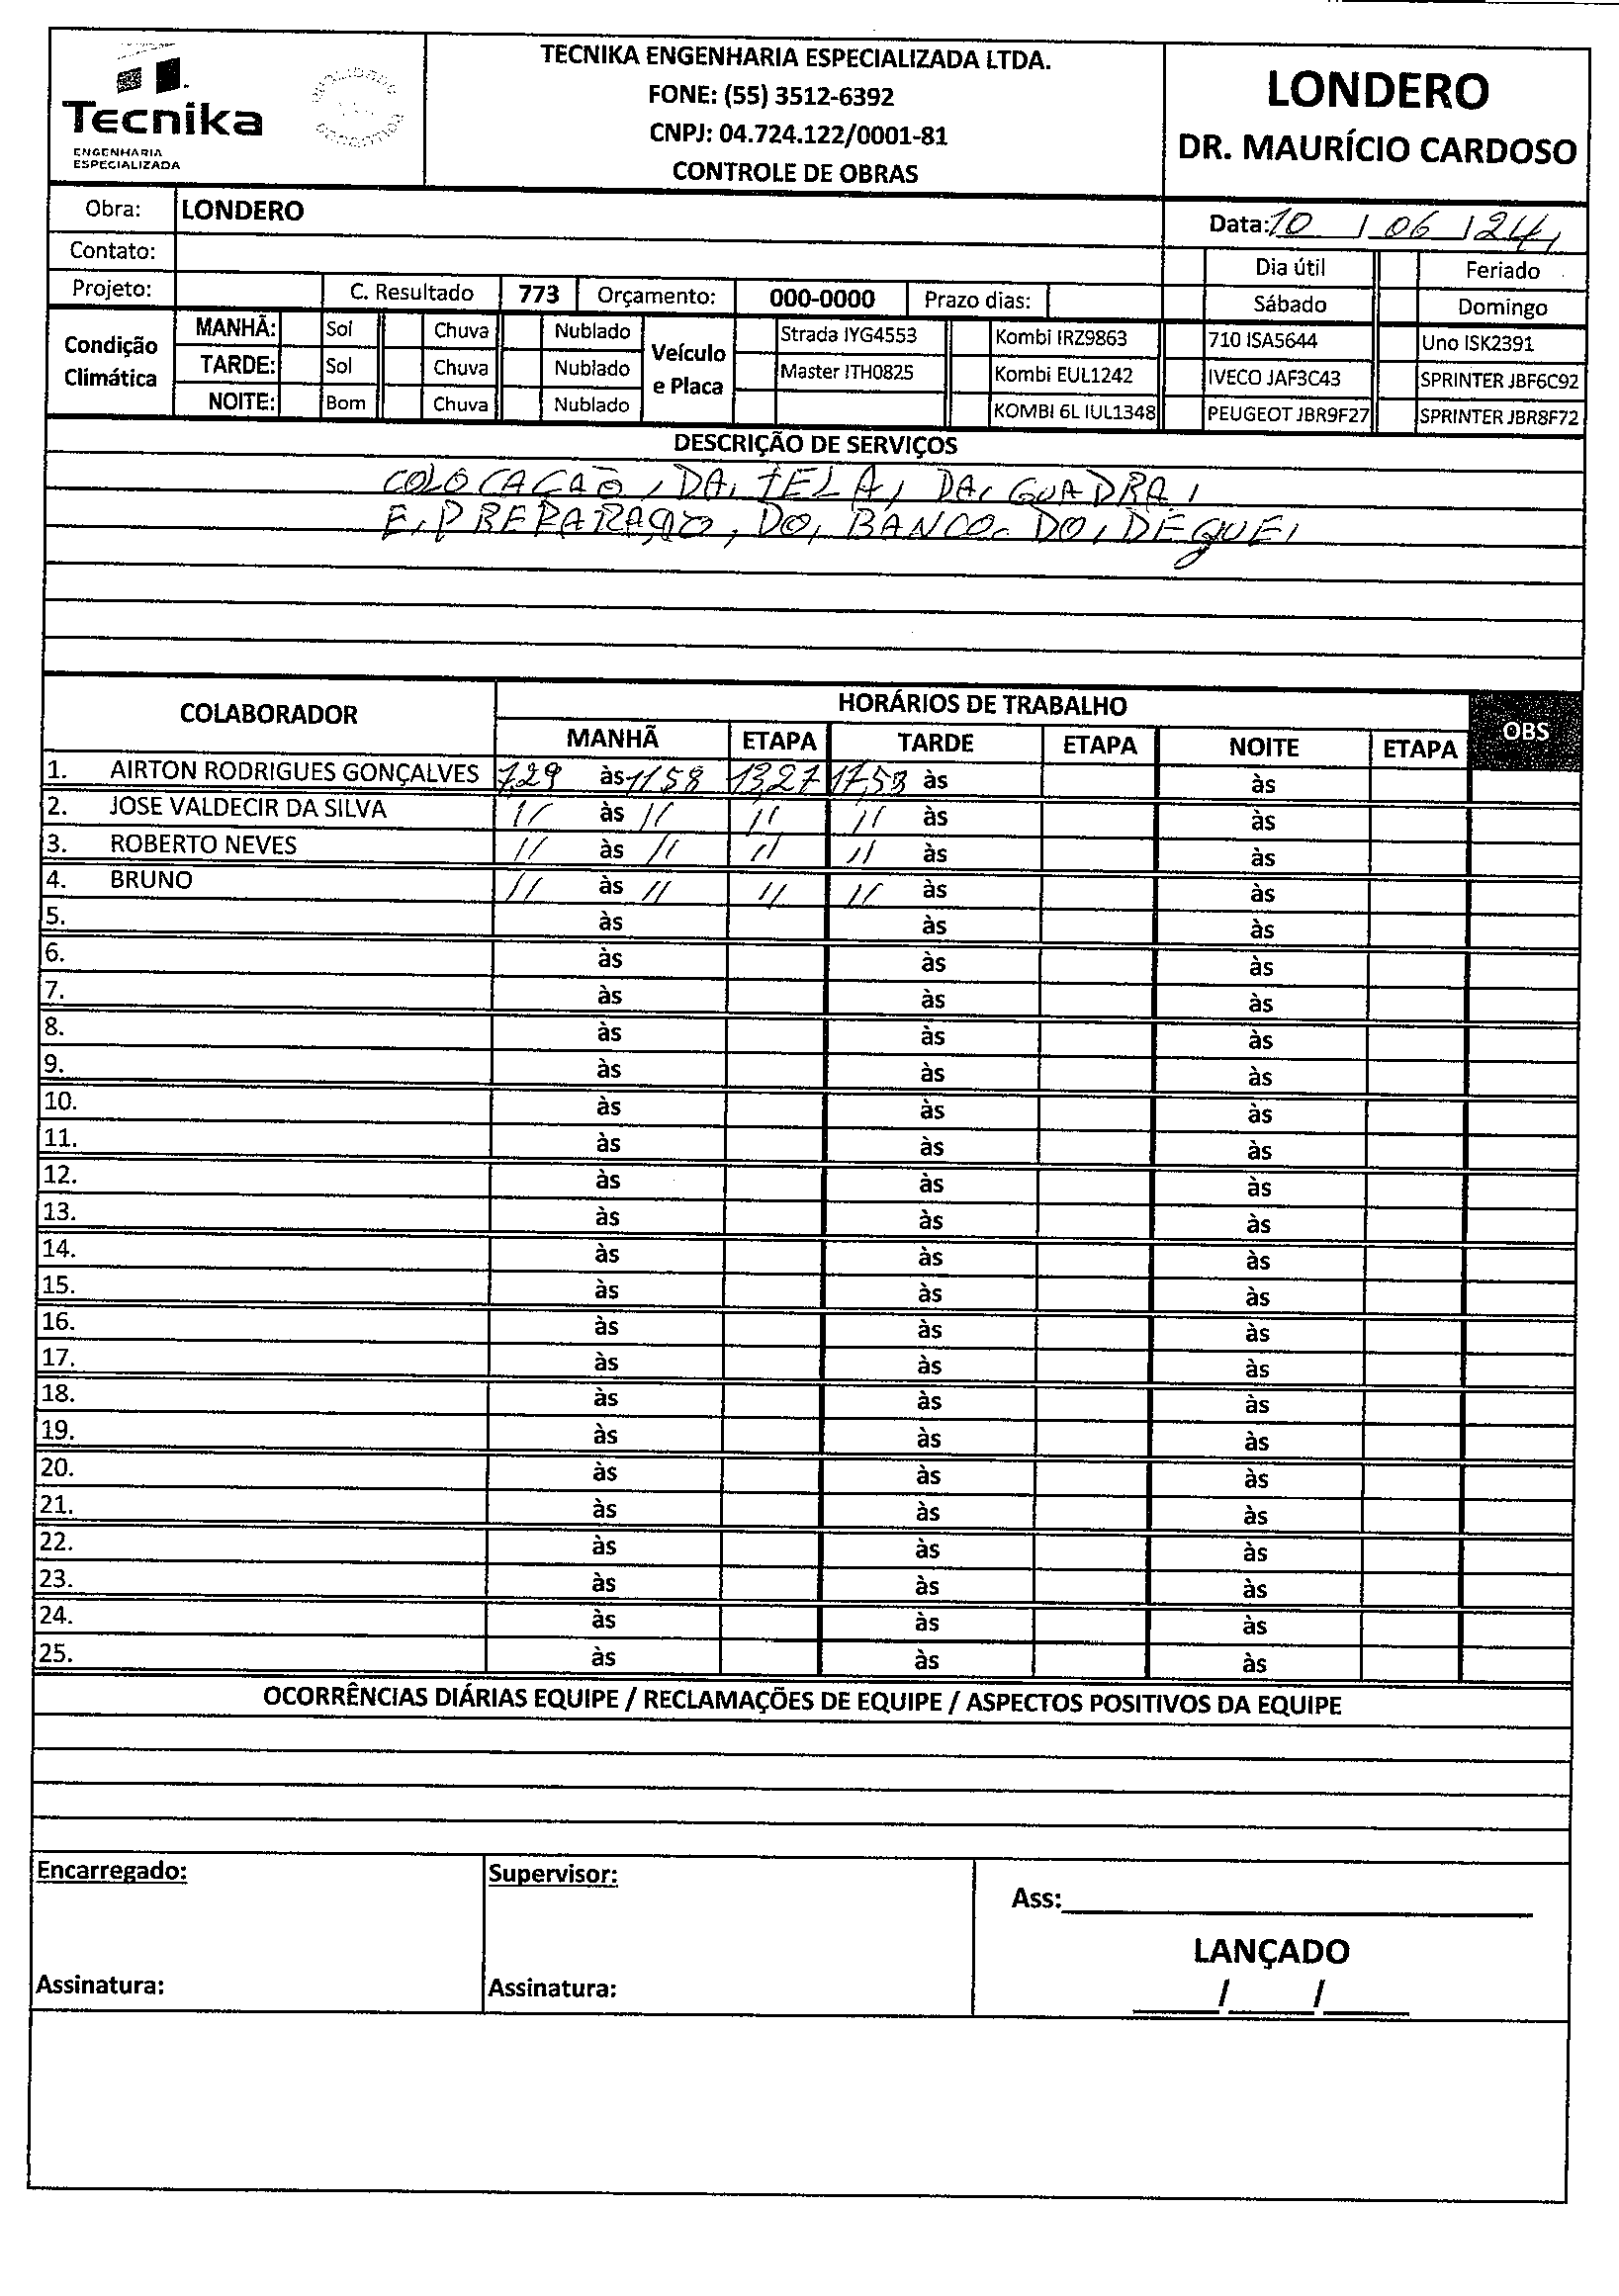 Tecnika
ENGENHARIA
ESPECIALIZADA
TECNIKA ENGENHARIA ESPECIALIZADA LTDA.
FONE: (55) 3512-6392
CNPJ: 04.724.122/0001-81
CONTROLE DE OBRAS
LONDERO
DR. MAURÍCIO CARDOSO
Obra: LONDERO
Data: 10 / 06 / 24
Contato:
Dia útil Feriado
Projeto: C. Resultado 773 Orçamento: 000-0000 Prazo dias:
Sábado Domingo
Condição Climática
MANHÃ: Sol Chuva Nublado
TARDE: Sol Chuva Nublado
NOITE: Bom Chuva Nublado
Veículo e Placa
Strada IYG4553 Kombi IRZ9863 710 ISA5644 Uno ISK2391
Master ITH0825 Kombi EUL1242 IVECO JAF3C43 SPRINTER JBF6C92
KOMBI 6L IUL1348 PEUGEOT JBR9F27 SPRINTER JBR8F72
DESCRIÇÃO DE SERVIÇOS
COLOCACAO, DA, TELA, DA, GUADRA,
E, PREPARAÇÃO, DO, BANCO. DO, DEGUE,
COLABORADOR HORÁRIOS DE TRABALHO OBS
MANHÃ ETAPA TARDE ETAPA NOITE ETAPA
1. AIRTON RODRIGUES GONÇALVES 7,29 às 11,58 13,27 17,58 às às
2. JOSE VALDECIR DA SILVA // às // // // às às
3. ROBERTO NEVES // às // // // às às
4. BRUNO // às // // // às às
5. às às às
6. às às às
7. às às às
8. às às às
9. às às às
10. às às às
11. às às às
12. às às às
13. às às às
14. às às às
15. às às às
16. às às às
17. às às às
18. às às às
19. às às às
20. às às às
21. às às às
22. às às às
23. às às às
24. às às às
25. às às às
OCORRÊNCIAS DIÁRIAS EQUIPE / RECLAMAÇÕES DE EQUIPE / ASPECTOS POSITIVOS DA EQUIPE
Encarregado:
Assinatura:
Supervisor:
Assinatura:
Ass:
LANÇADO
/ /